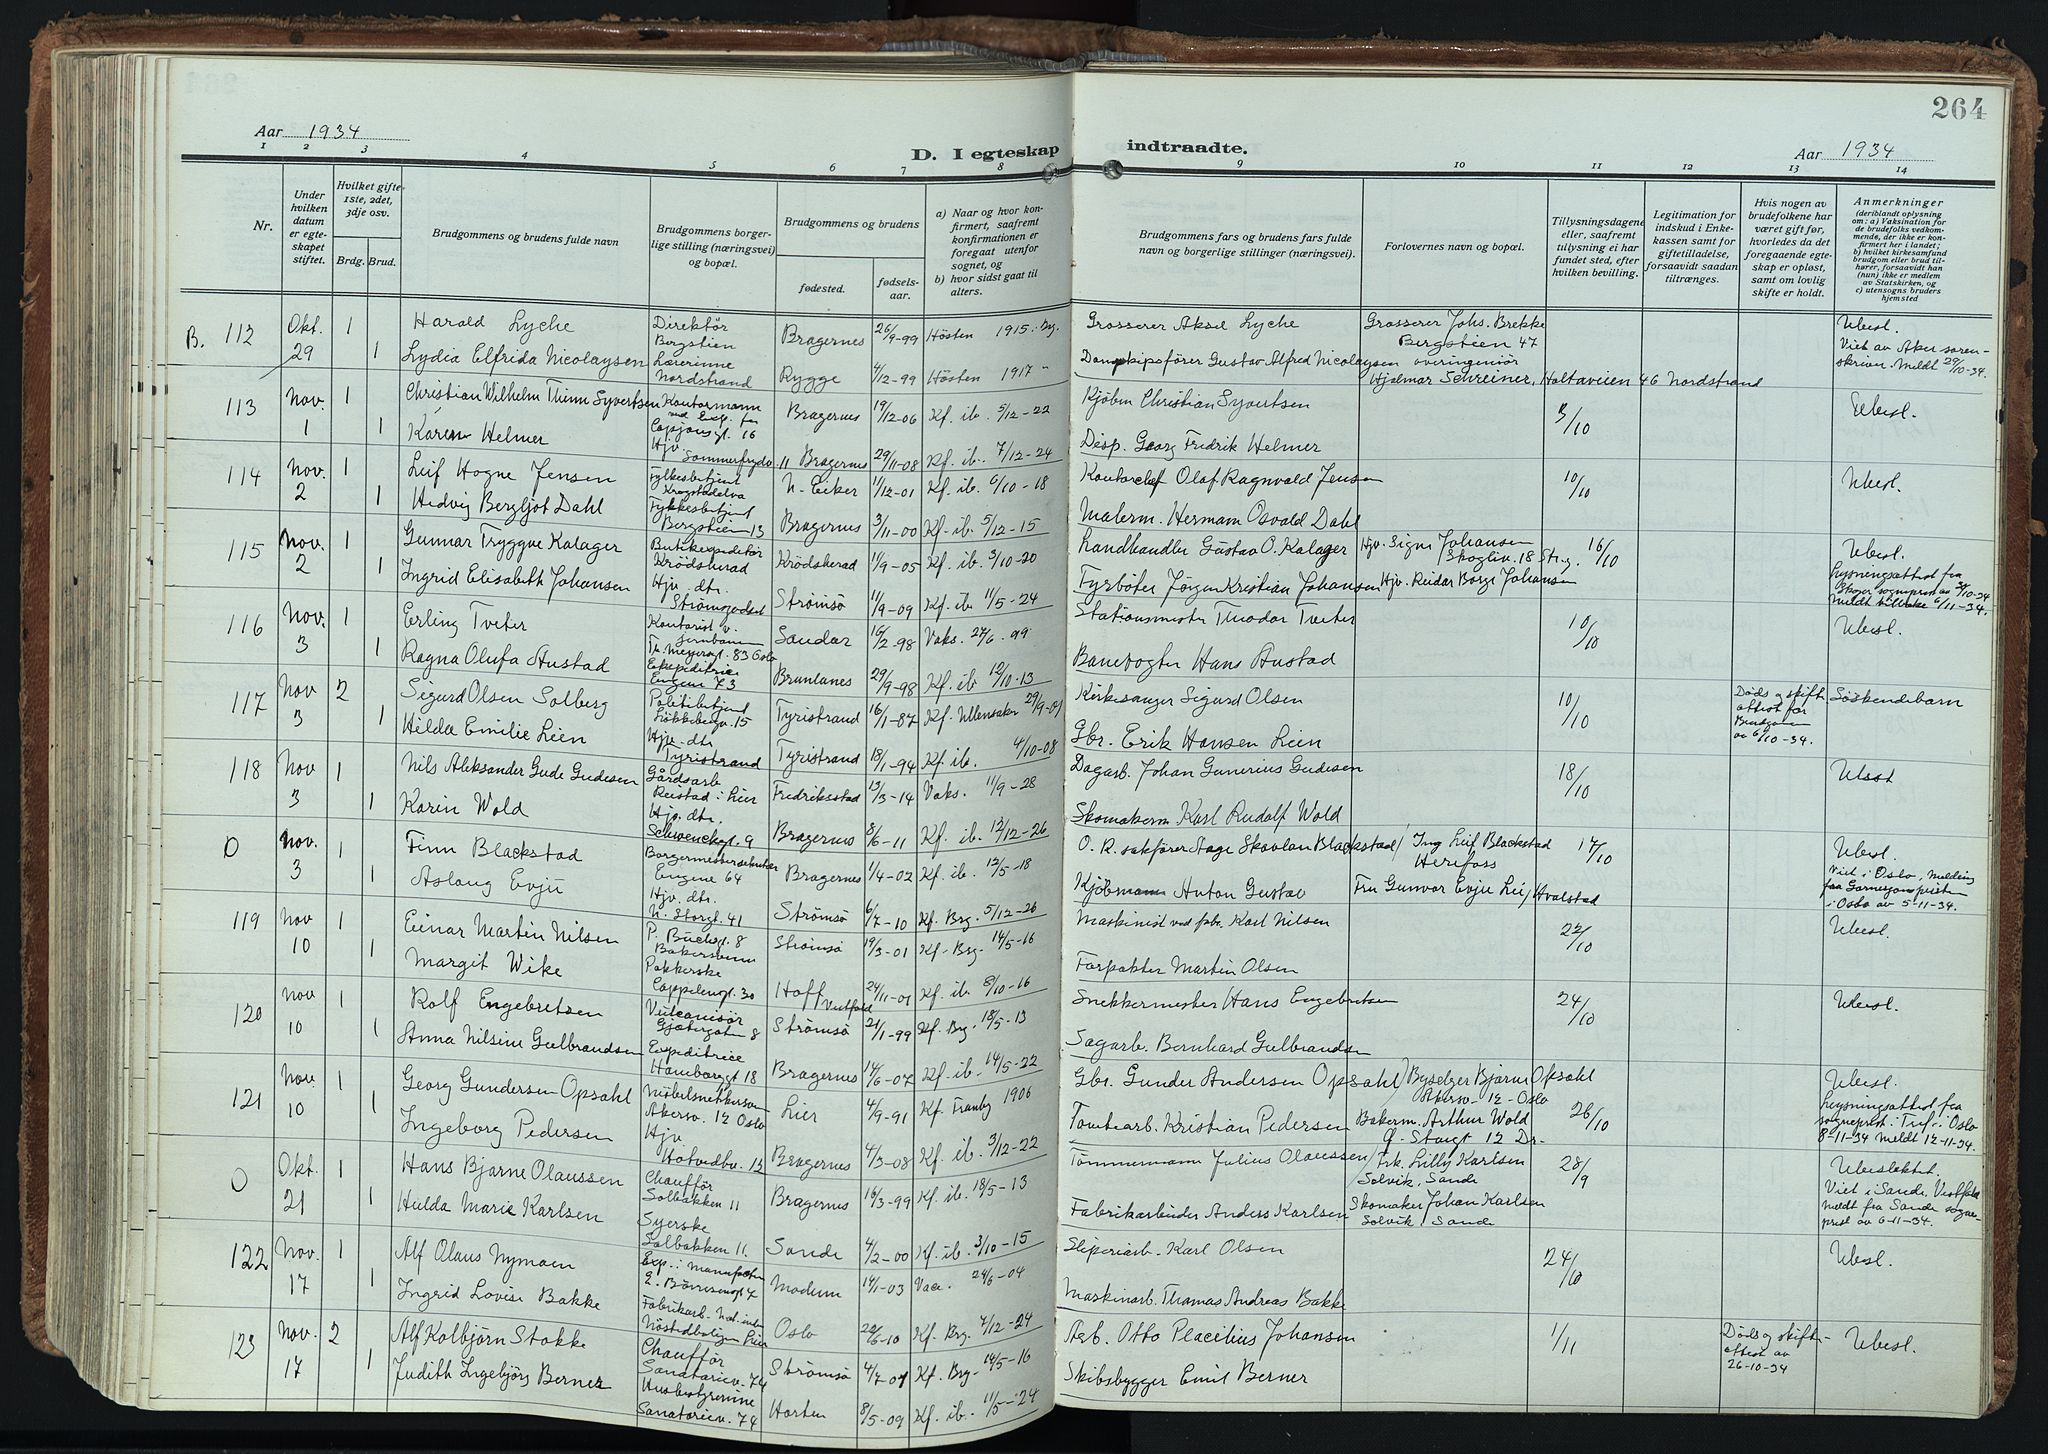 264
Aar 1934
D. I egteskap indtraadte.
Aar 1934
1 2 3 4 5 6 7 8 9 10 11 12 13 14
Nr.
Under hvilken datum er egteskapet stiftet.
Hvilket gifte- 1ste, 2det, 3dje osv.
Brdg. Brud.
Brudgommens og brudens fulde navn
Brudgommens borgerlige stilling (næringsvei) og bopæl.
Brudgommens og brudens
fødested.
fødselsaar.
a) Naar og hvor konfirmert, saafremt konfirmationen er foregaat utenfor sognet, og
b) hvor sidst gaat til alters.
Brudgommens fars og brudens fars fulde navn og borgerlige stillinger (næringsvei).
Forlovernes navn og bopæl.
Tillysningsdagene eller, saafremt tillysning ei har fundet sted, efter hvilken bevilling.
Legitimation for indskud i Enkekassen samt for giftetilladelse, forsaavidt saadan tiltrænges.
Hvis nogen av brudefolkene har været gift før, hvorledes da det foregaaende egteskap er opløst, samt om lovlig skifte er holdt.
Anmerkninger
(deriblandt oplysning om: a) Vaksination for de brudefolks vedkommende, der ikke er konfirmert her i landet; b) hvilket kirkesamfund brudgom eller brud tilhører, forsaavidt han (hun) ikke er medlem av Statskirken, og c) utensogns bruders hjemsted
B. 112 Okt. 29 1 Harald Lyche Direktør Bergstien Bragernes 26/9-99 Høsten 1915. Grosserer Aksel Lyche Grosserer Johs. Brekke Bergstien 47 Ubesl.
1 Lydia Elfrida Nicolaysen Lærerinne Nordstrand Rygge 4/12-99 Høsten 1917 Gustav Alfred Nicolaysen overingeniør Hjalmar Schreiner, Holtaveien 46 Nordstrand Viet av Aker sorenskriver. Meldt 29/10-34.
113 Nov. 1 1 Christian Wilhelm Thinn Syvertsen Kontormann Bragernes 19/12-06 Kf. ib. 5/12-22 Kjøbm Christian Syvertsen /10 Ubesl.
1 Karen Helmer Hjv. Sommerfrydv 11 Bragernes 29/11-08 Kf. ib. 7/12-24 Disp. Georg Fredrik Helmer
114 Nov. 2 1 Leif Hogne Jensen Fylkesbetjent Krogstadelva N. Eiker 11/12-01 Kf. ib. 6/10-18 Kontorchef Olaf Ragnvald Jensen 10/10 Ubesl.
1 Hedvig Bergljot Dahl Bergstien 13 Bragernes 3/11-00 Kf. ib. 5/12-15 Malerm. Hermann Osvald Dahl
115 Nov. 2 1 Gunnar Tryggve Kalager Butikexpeditør Krødsherad Krødsherad 11/9-05 Kf. ib. 3/10-20 Landhandler Gustav O. Kalager Hjv. Signe Johansen Skogliv. 18 Str.g. 16/10 Ubesl.
1 Ingrid Elisabeth Johansen Hjv. dtr. Strømsø 11/9-09 Kf. ib 11/5-24 Fyrbøter Jørgen Kristian Johansen Hjv. Reidar Borge Johansen Lysningsattest fra Skoger sogneprest
116 Nov. 3 1 Erling Tveter Kontorist v. Jernbanen Th. Meyersgt. 83 Oslo Sandar 16/2-98 Vaks. 27/6-99 Stationsmester Theodor Tveter 10/10 Ubesl.
1 Ragna Olufa Austad Expeditrice Engene 73 Brunlanes 29/9-98 Kf. ib 12/10-13 Banevogter Hans Austad
117 Nov 3 2 Sigurd Olsen Solberg Politibetjent Løkkebergv. 15 Tyristrand 16/1-87 Kf. Ullensaker Kirkesanger Sigurd Olsen 10/10 Døds og skifteattest for Brudgommen av 6/10-34. Søskendebarn
1 Hilda Emilie Lien Hjv. dtr. Tyristrand Tyristrand 18/1-94 Kf. ib. 4/10-08 Gbr. Erik Hansen Lien
118 Nov 3 1 Nils Aleksander Gude Gudesen Gårdsarb Reistad i Lier Fredrikstad 13/3-14 Vaks. 11/9-28 Dagarb. Johan Gunerius Gudesen 18/10 Ubesl
1 Karin Wold Hjv. dtr. Schwenckegt. 9 Bragernes 8/6-11 Kf. ib. 12/12-26 Skomakerm Karl Rudolf Wold
O Nov. 3 1 Finn Blackstad Engene 64 Bragernes 1/4-02 Kf. ib. 12/5-18 O. R. sakfører Aage Skavlan Blackstad / Ing Leif Blackstad Herefoss 17/10 Ubesl.
1 Aslaug Evju Hjv. dtr. N. Storgt. 41 Strømsø 6/7-10 Kf. Brg. 5/12-26 Kjøbmann Anton Gustav Fru Gunvor Evju Lie, Hvalstad Viet i Oslo, Melding fra Garnisonsprest i Oslo av 5-11-34.
119 Nov 10 1 Einar Martin Nilsen P. Buchsgt. 8 Bakersvenn Strømsø 19/3-01 Kf. Brg. 14/5-16 Maskinist ved fabr. Karl Nilsen 22/10 Ubesl.
1 Margit Wike Pakkerske Cappelensgt. 30 Hoff Vestfold 24/11-01 Kf. ib. 8/10-16 Forpakter Martin Olsen
120 Nov 10 1 Rolf Engebretsen Vulcanisør Gjetergaten 8 Strømsø 21/1-99 Kf. Brg. 18/5-13 Snekkermester Hans Engebretsen 24/10 Ubesl.
1 Anna Nilsine Gulbrandsen Expeditrice Hamborggt 18 Bragernes 14/6-07 Kf. ib. 14/5-22 Sagarb. Bernhard Gulbrandsen
121 Nov. 10 1 Georg Gundersen Opsahl Akersv. 12 Oslo Lier 4/9-91 Kf. Tranby 1906 Gbr. Gunder Andersen Opsahl / Byselger Bjarne Opsahl Akersv. 12 - Oslo 26/10 Ubesl.
1 Ingeborg Pedersen Hjv. Hotvedtv. 13 Bragernes 4/3-08 Kf. ib. 3/12-22 Tomtearb. Kristian Pedersen Bakerm. Arthur Wold Ø. Storgt 12 Dr. Lysningsattest fra sogneprest i Tref. i Oslo 8-11-34 Meldt 12-11-34.
O Okt. 21 1 Hans Bjarne Olaussen Chauffør Solbakken 11 Bragernes 16/3-99 Kf. ib. 18/5-13 Tømmermann Julius Olaussen / Frk. Lilly Karlsen Selvik, Sande 28/9 Ubeslektet.
1 Hulda Marie Karlsen Syerske Solbakken 11. Sande 4/2-00 Kf. ib. 3/10-15 Fabrikarbeider Anders Karlsen Skomaker Johan Karlsen Selvik, Sande Viet i Sande, Vestfold meldt fra Sande sogneprest av 6-11-34.
122 Nov. 17 1 Alf Olaus Nymoen Exp. i Manufaktur Modum 14/1-03 Vacc. 24/6-04 Sliperiarb. Karl Olsen 24/10 Ubesl.
1 Ingrid Lovise Bakke Fabrikarb. Oslo 22/6-10 Kf. Brg. 7/12-24 Maskinarb. Thomas Andreas Bakke
123 Nov. 17 2 Alf Kolbjørn Stokke Chauffør Sanatoriev. 74 Strømsø 4/7-01 Kf. Brg. 14/5-16 Arb. Otto Placitius Johansen 1/11 Døds og skifteattest av 26-10-34 Ubesl.
1 Judith Ingebjørg Berner Husbestyrerinne Sanatoriev. 74 Horten 8/5-09 Kf. ib. 11/5-24 Skibsbygger Emil Berner